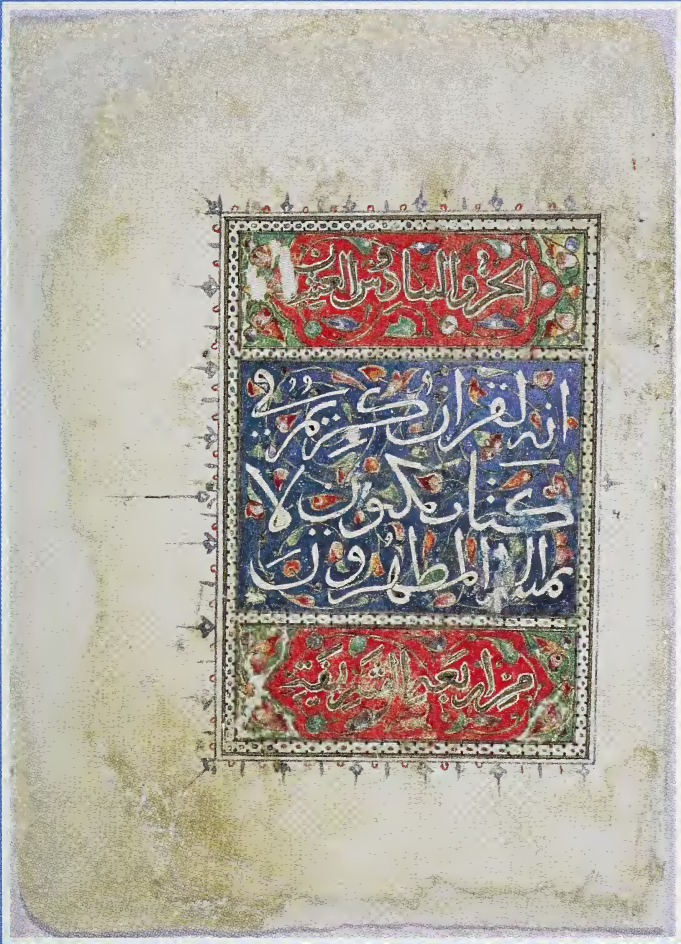 الجزو السادس والعشرون
انه لقران كريم في
كتاب مكنون لا
يمسه الا المطهرون
من الربعة الشريفة